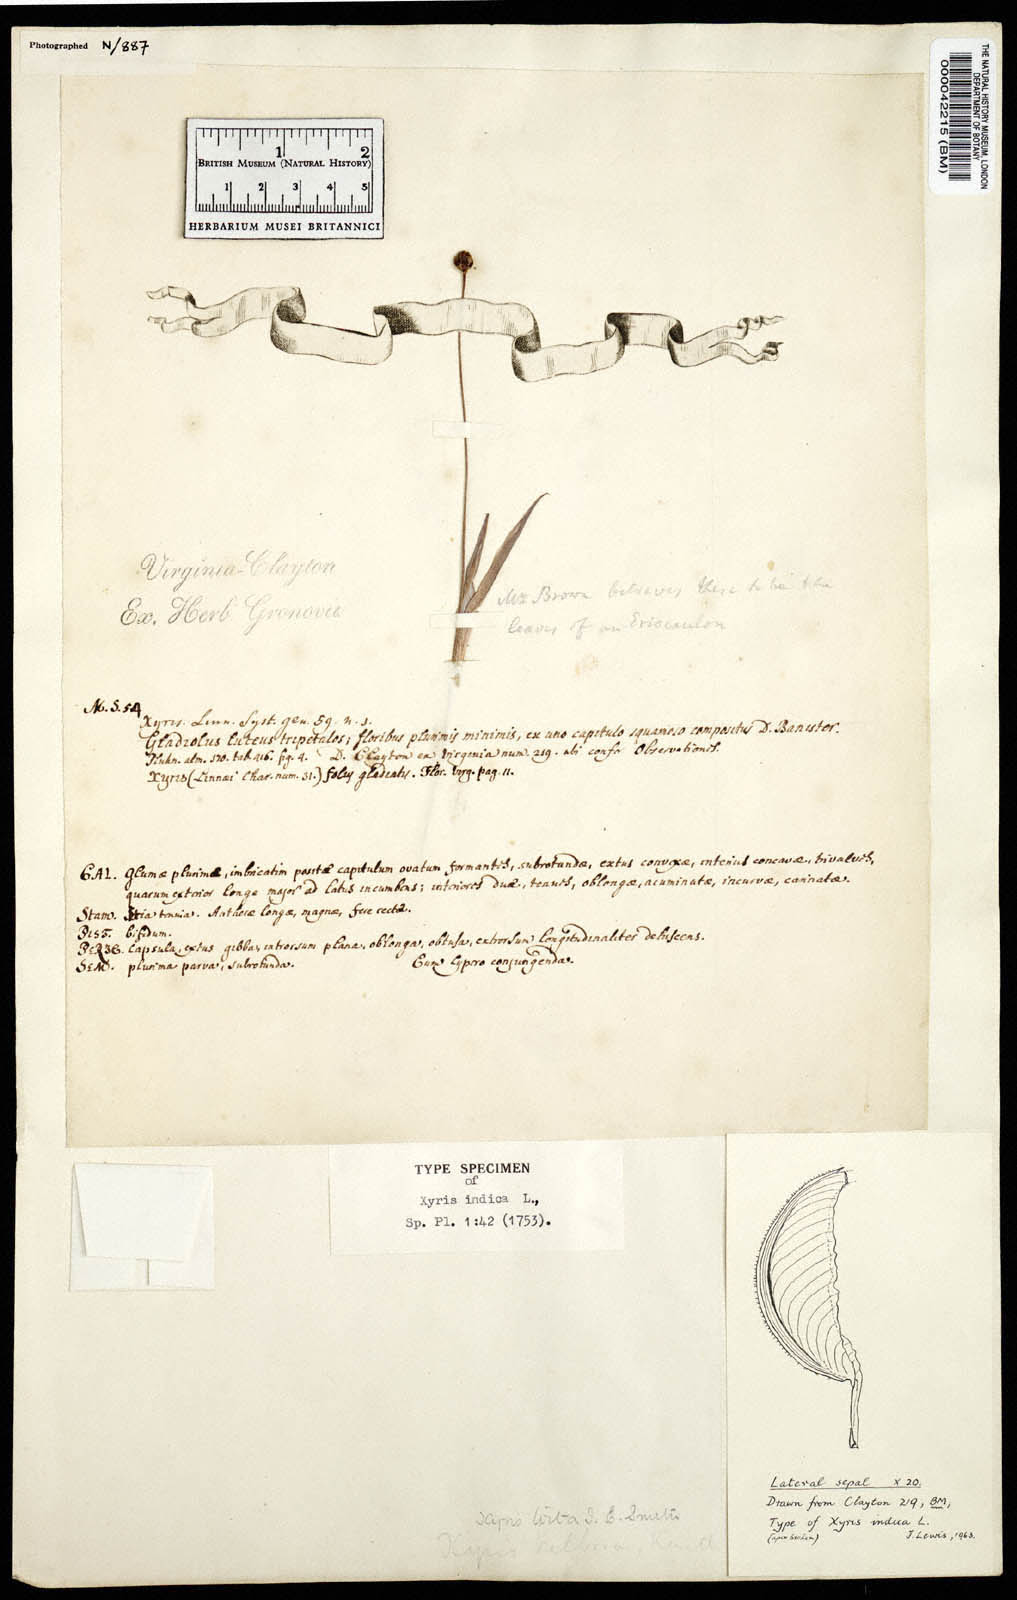 Photographed N/887
THE NATURAL HISTORY MUSEUM, LONDON
DEPARTMENT OF BOTANY
000042215 (BM)
1 2
BRITISH MUSEUM (NATURAL HISTORY)
1 2 3 4 5
HERBARIUM MUSEI BRITANNICI
Virginia-Clayton
Ex. Herb Gronovii
Mr Brown believes these to be the
leaves of an Eriocaulon
Xyris. Linn. Syst. gen. 59. n. 1.
Gladiolus luteus tripetalos; floribus plurimis minimis, ex uno capitulo squamoso compositus D. Banister.
Plukn. alm. 170. tab. 416. fig. 4. D. Clayton ex Virginia num. 219. ubi confer Observationes.
Xyris (Linnæi Char. num. 31.) foliis gladiatis. Flor. Virg. pag. 11.
CAL. glumæ plurimæ, imbricatim positæ capitulum ovatum formantes, subrotundæ, extus convexæ, interius concavæ, trivalves,
quarum exterior longe major ad latus incumbens; interiores duæ, tenues, oblongæ, acuminatæ, incurvæ, carinatæ.
Stam. tria tenuia. Antheræ longæ, magnæ, fere rectæ.
Pist. bifidum.
capsula, extus gibba, introrsum plana, oblonga, obtusa, extrorsum longitudinaliter dehiscens.
Sem. plurima parva, subrotunda. Cum Cypero conjungenda.
TYPE SPECIMEN
of
Xyris indica L.,
Sp. Pl. 1:42 (1753).
Lateral sepal x 20.
Drawn from Clayton 219, BM,
Type of Xyris indica L.
J. Lewis, 1963.